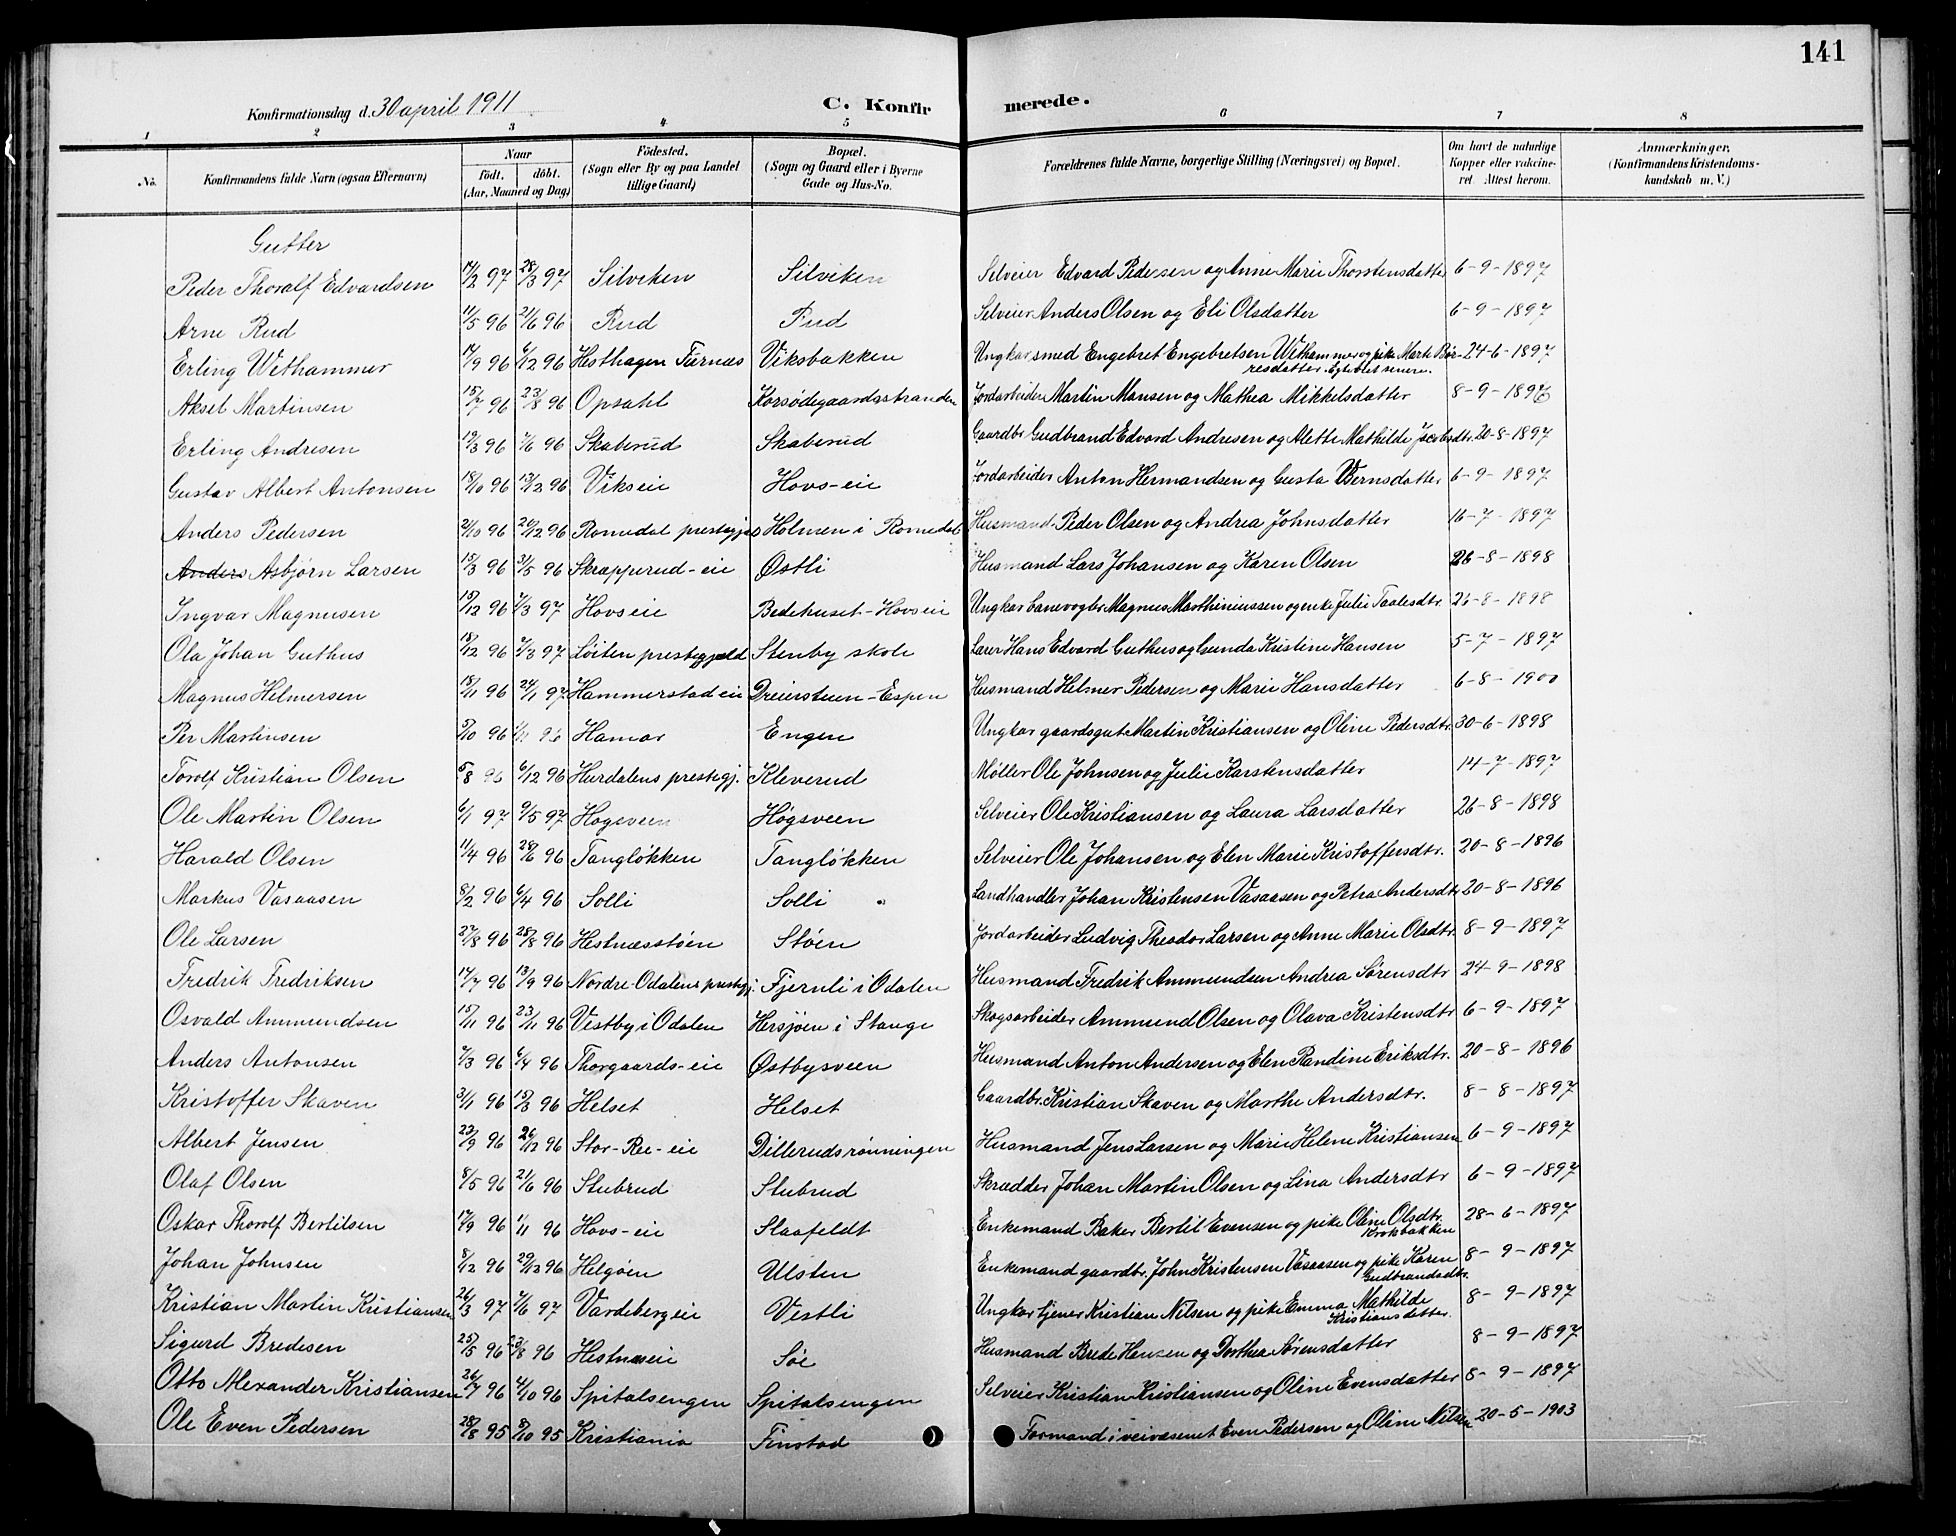 141
Konfirmationsdag d. 30 april 1911
C. Konfirmerede.
1 2 3 4 5 6 7 8
No. Konfirmandens fulde Navn (ogsaa Efternavn) Naar födt. döbt. (Aar, Maaned og Dag) Födested. (Sogn eller By og paa Landet tillige Gaard) Bopæl. (Sogn og Gaard eller i Byerne Gade og Hus-No. Forældrenes fulde Navne, borgerlige Stilling (Næringsvei) og Bopæl. Om havt de naturlige Kopper eller vaccineret. Attest herom. Anmærkninger, (Konfirmandens Kristendomskundskab m. V.)
Gutter
Peder Thoralf Edvardsen 14/2 97 28/3 97 Silviken Silviken Selveier Edvard Pedersen og Anne Marie Thorstensdatter 6-9-1897
Arne Rud 11/5 96 21/6 96 Rud Rud Selveier Anders Olsen og Eli Olsdatter 6-9-1897
Erling Wethammer 17/9 96 6/12 96 Hesthagen Furnæs Viksbakken Ungkar smed Engebret Engebretsen Wethammer og pike Marte Børresdatter. Egteviet senere. 24-6-1897
Aksel Martinsen 15/7 96 23/8 96 Opsahl Korsødegaardsstranden Jordarbeider Martin Hansen og Mathea Mikkelsdatter 8-9-1896
Erling Andresen 19/3 96 7/6 96 Skaberud Skaberud Gaardbr. Gudbrand Edvard Andresen og Alette Mathilde Jacobsdtr. 20-8-1897
Gustav Albert Antonsen 18/10 96 13/12 96 Vikseie Hovs-eie Jordarbeider Anton Hermandsen og Gusta Bernsdatter 6-9-1897
Anders Pedersen 21/10 96 26/12 96 Romedal prestegj. Holmen i Romedal Husmand Peder Olsen og Andrea Johnsdatter 16-7-1897
Anders Asbjörn Larsen 15/3 96 31/5 96 Skrapperud-eie Østli Husmand Lars Johansen og Karen Olsen 26-8-1898
Ingvar Magnusen 15/12 96 7/3 97 Hovseie Bedehuset-Hovseie Ungkar banevogter Magnus Marthiniussen og enke Julie Taalesdtr. 26-8-1898
Ola Johan Guthus 18/12 96 7/3 97 Löiten prestegjeld Stenby skole Lærer Hans Edvard Guthus og Gunda Kristine Hansen 5-7-1897
Magnus Helmersen 18/11 96 24/1 97 Hammerstadeie Dreierstuen-Espen Husmand Helmer Pedersen og Marie Hansdatter 6-8-1900
Per Martinsen 5/10 96 1/11 96 Hamar Engen Ungkar gaardsgut Martin Kristiansen og Oline Pedersdtr. 30-6-1898
Torolf Kristian Olsen 5/8 96 6/12 96 Hurdalens prestegj. Kleverud Møller Ole Johnsen og Julie Karstensdatter 14-7-1897
Ole Martin Olsen 6/1 97 9/5 97 Høgsveen Høgsveen Selveier Ole Kristiansen og Laura Larsdatter 26-8-1898
Harald Olsen 11/4 96 28/6 96 Tangløkken Tangløkken Selveier Ole Johansen og Elen Marie Kristoffersdtr. 20-8-1896
Markus Vasaasen 8/2 96 6/4 96 Solli Solli Landhandler Johan Kristensen Vasaasen og Petra Andersdtr 20-8-1896
Ole Larsen 27/8 96 28/8 96 Hestnæsstøen Støen Jordarbeider Ludvig Theodor Larsen og Anne Marie Olsdtr. 8-9-1897
Fredrik Fredriksen 14/7 96 13/9 96 Nordre-Odalens prestegj. Fjernli i Odalen Husmand Fredrik Ammundsen Andrea Sørensdtr 24-9-1898
Osvald Ammundsen 15/11 96 23/11 96 Vestby i Odalen Hersjøen i Stange Skogsarbeider Ammund Olsen og Olava Kristensdtr 6-9-1897
Anders Antonsen 7/3 96 6/4 96 Thorgaards-eie Østbysveen Husmand Anton Andersen og Elen Randine Eriksdtr. 20-8-1896
Kristoffer Skaven 3/1 96 15/3 96 Helset Helset Gaardbr. Kristian Skaven og Marthe Andersdtr. 8-8-1897
Albert Jensen 23/9 96 26/12 96 Stor-Ree-eie Dillerudsrønningen Husmand Jens Larsen og Marie Helene Kristiansen 6-9-1897
Olaf Olsen 8/5 96 21/6 96 Stubrud Stubrud Skrædder Johan Martin Olsen og Lina Andersdtr 6-9-1897
Oskar Thorolf Bertilsen 17/9 96 1/11 96 Hovs-eie Slaafeldt Enkemand Baker Bertil Evensen og pike Oline Olsdtr. Krokbakken 28-6-1897
Johan Johnsen 8/12 96 29/12 96 Helgøen Ulsten Enkemand gaardbr. John Kristensen Vasaasen og pike Karen Gudbrandsdtr. 8-9-1897
Kristian Martin Kristiansen 26/3 97 7/6 97 Vardebergeie Vestli Ungkar tjener Kristian Nilsen og pike Emma Mathilde Kristiansdatter. 8-9-1897
Sigurd Bredesen 25/5 96 23/8 96 Hestnæseie Søe Husmand Brede Hansen og Dorthea Sørensdatter 8-9-1897
Otto Alexander Kristiansen 26/7 96 4/10 96 Spitalsengen Spitalsengen Selveier Kristian Kristiansen og Oline Evensdatter 8-9-1897
Ole Even Pedersen 28/8 95 8/10 95 Kristiania Finstad Formand i veivæsenet Even Pedersen og Oline Nilsen 20-5-1903